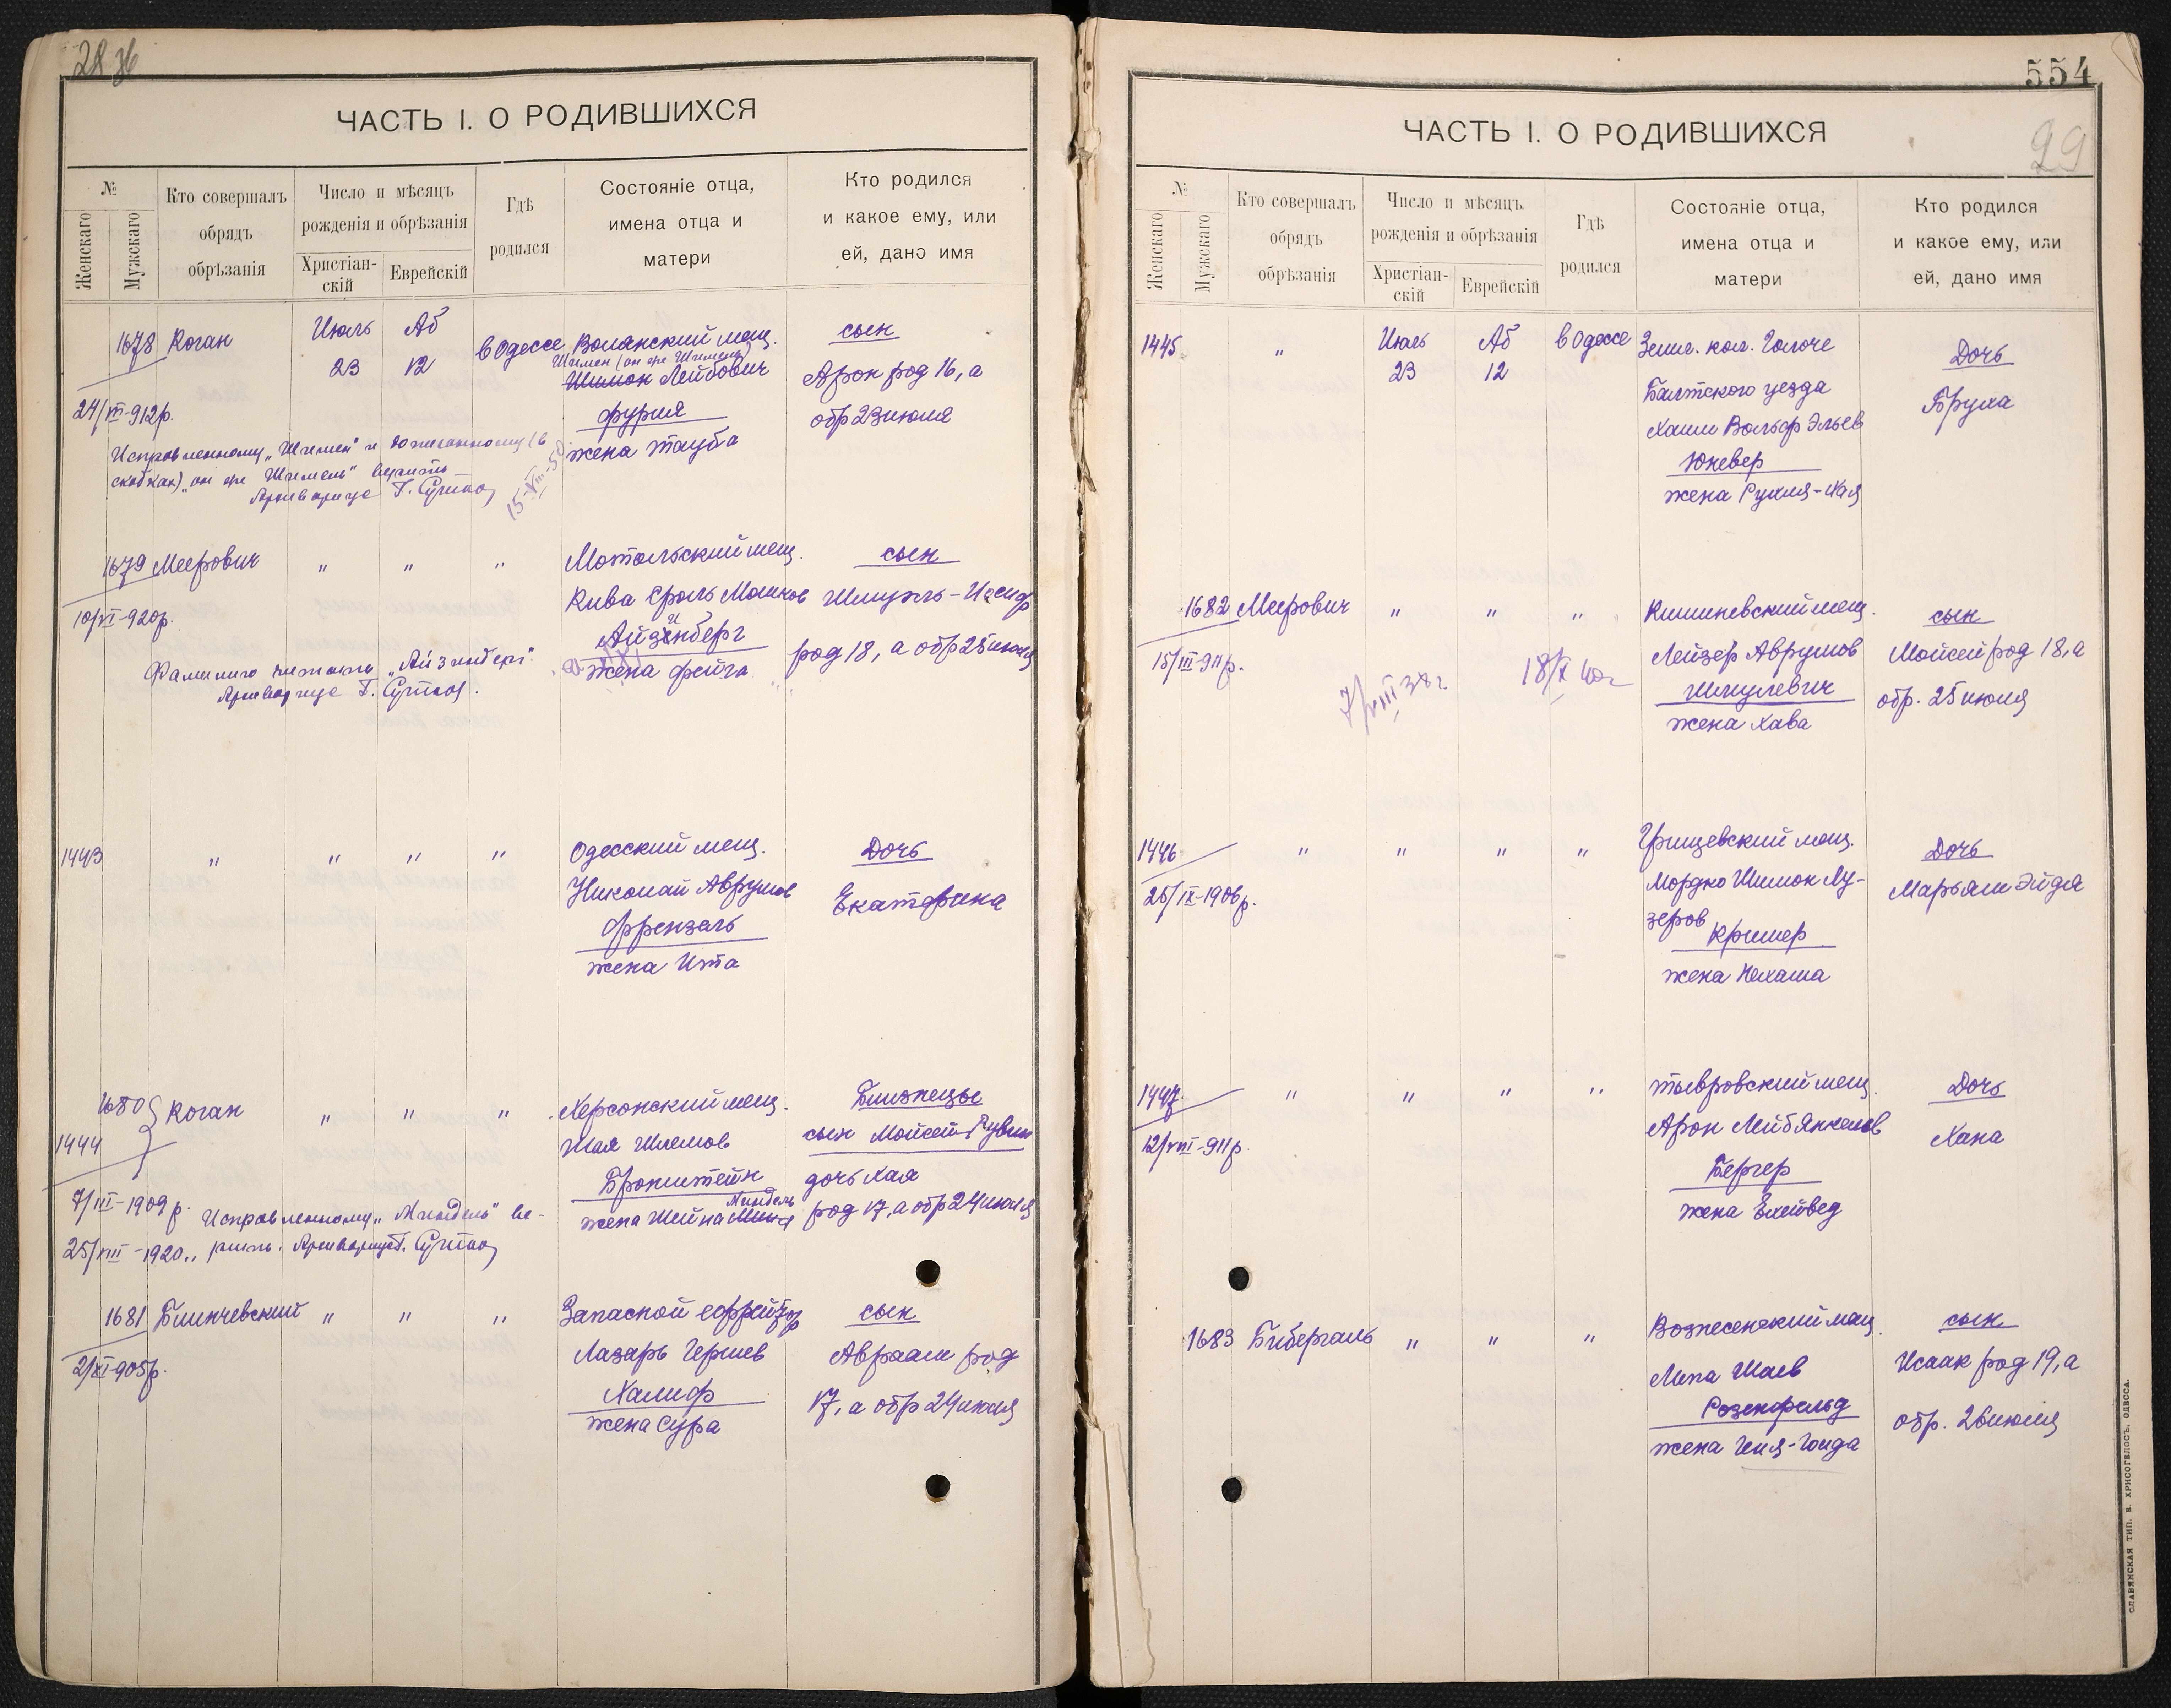 28 об
ЧАСТЬ I. О РОДИВШИХСЯ
№
Женскаго
Мужскаго
Кто совершалъ
обрядъ
обрѣзанія
Число и мѣсяцъ
рожденія и обрѣзанія
Христіан-
скій
Еврейскій
Гдѣ
родился
Состояніе отца,
имена отца и
матери
Кто родился
и какое ему, или
ей, дано имя
1678 Коган
Июль Аб
23 12
в Одессе
мещ.
Шимон Лейбович
фурия
жена Тауба
сын
Арон род 16, а
обр 23 июля
24/VII-912р.
Исправленному „Шимен" и дописанному (в
скобках) „он же Шимель" верить
Архивариус Г.
15-VIII-50
1679 Меерович " " "
Мотольский мещ.
Кива Сроль Мошков
Айзинберг
жена фейга
сын
Шмуэль-Иосиф
род 18, а обр 25 июля
10/VI-920р.
Фамилию читать „Айзинберг"
Архивариус Г.
1443 " " " "
Одесский мещ.
Николай Аврумов
Френзель
жена Ита
Дочь
Екатерина
1680 Коган " " "
1444
Херсонский мещ.
Шая Шлемов
Бронштейн
Миндель
жена Шейна
Близнецы
сын Мойсей Рувин
дочь Хая
род 17, а обр 24 июля
7/III-1909 р.
25/VIII-1920..
Исправленному „Миндель" ве-
рить. Архивариус Г.
1681 Блинчевский " " "
Запасной ефрейтор
Лазарь Гершев
Халиф
жена Сура
сын
Авраам род
17, а обр 24 июля
2/XI-905р.
554
29
ЧАСТЬ I. О РОДИВШИХСЯ
№
Женскаго
Мужскаго
Кто совершалъ
обрядъ
обрѣзанія
Число и мѣсяцъ
рожденія и обрѣзанія
Христіан-
скій
Еврейскій
Гдѣ
родился
Состояніе отца,
имена отца и
матери
Кто родился
и какое ему, или
ей, дано имя
1445 "
Июль Аб
23 12
в Одессе
кол.
Балтского уезда
Хаим Вольф Эльев
Юкевер
жена Рухля-Хая
Дочь
Бруха
1682 Меерович " " "
Кишиневский мещ.
Лейзер Аврумов
Шмулевич
жена Хава
сын
Мойсей род 18, а
обр. 25 июля
15/III-911р.
7/VIII 38г
18/X 40г
1446 " " " "
Грицевский мещ.
Мордко Шимон Лу-
зеров
Кример
жена Нехама
Дочь
Марьям Эйдя
26/IX-1906р.
1447 " " " "
Тывровский мещ.
Арон Лейб Янкелев
Бергер
жена Ехейвед
Дочь
Хана
12/VIII-911р.
1683 Бибергаль " " "
Вознесенский мещ.
Липа Шаев
Розенфельд
жена Геня-Гинда
сын
Исаак род 19, а
обр. 26 июля
СЛАВЯНСКАЯ ТИП. Е. ХРИСОГЕЛОСЪ, ОДЕССА.